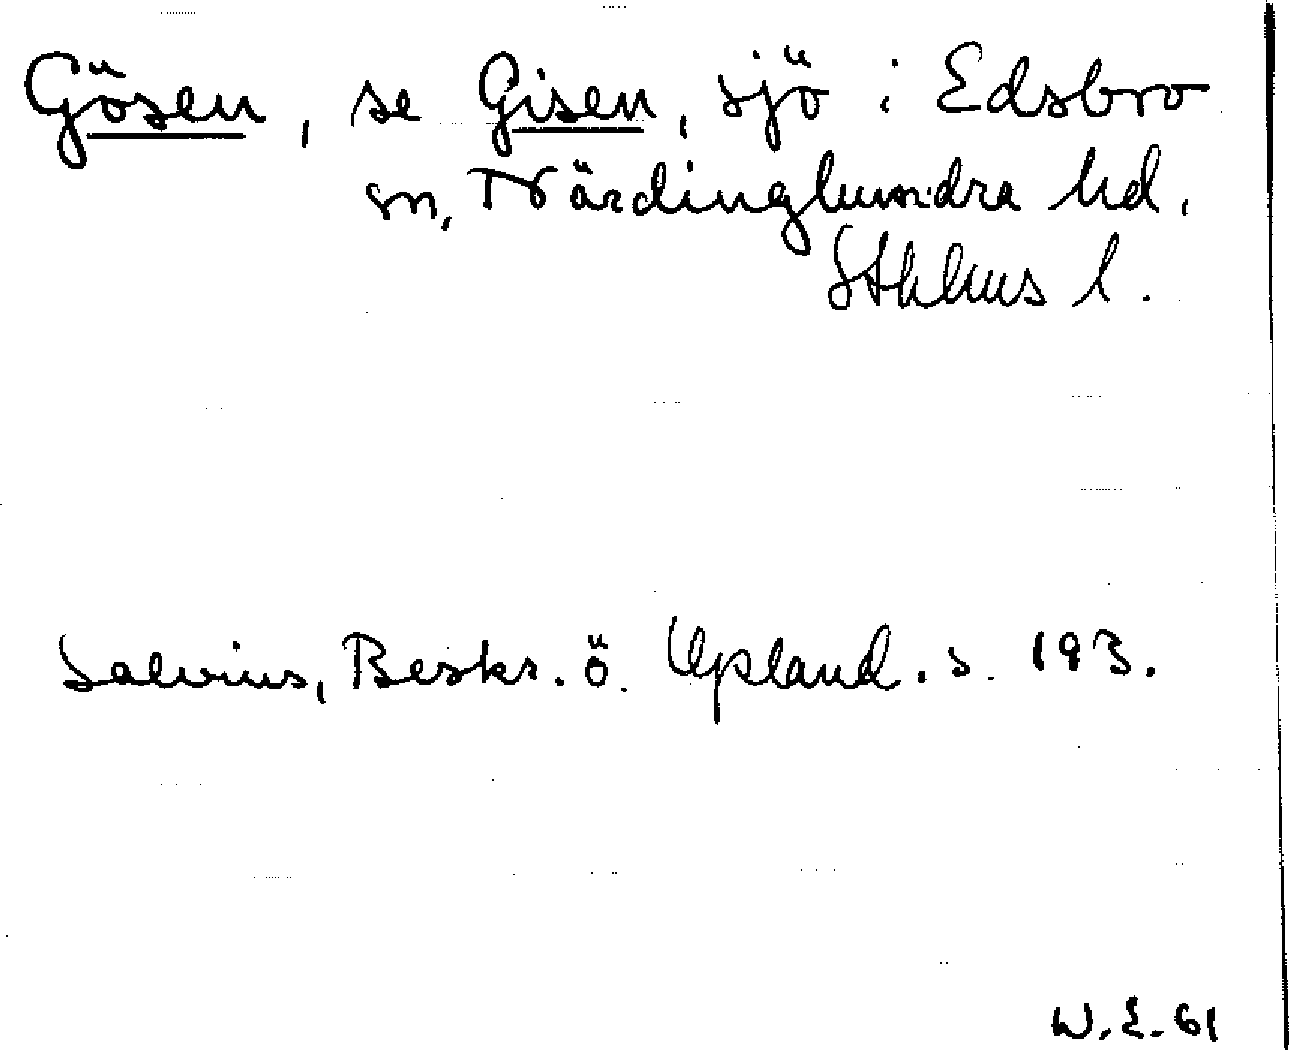 Gösen, se Gisen, sjö i Edsbro
sn, Närdinghundra hd,
Sthlms l.
Salvius, Beskr. ö. Upland. s. 193.
W. E. 61